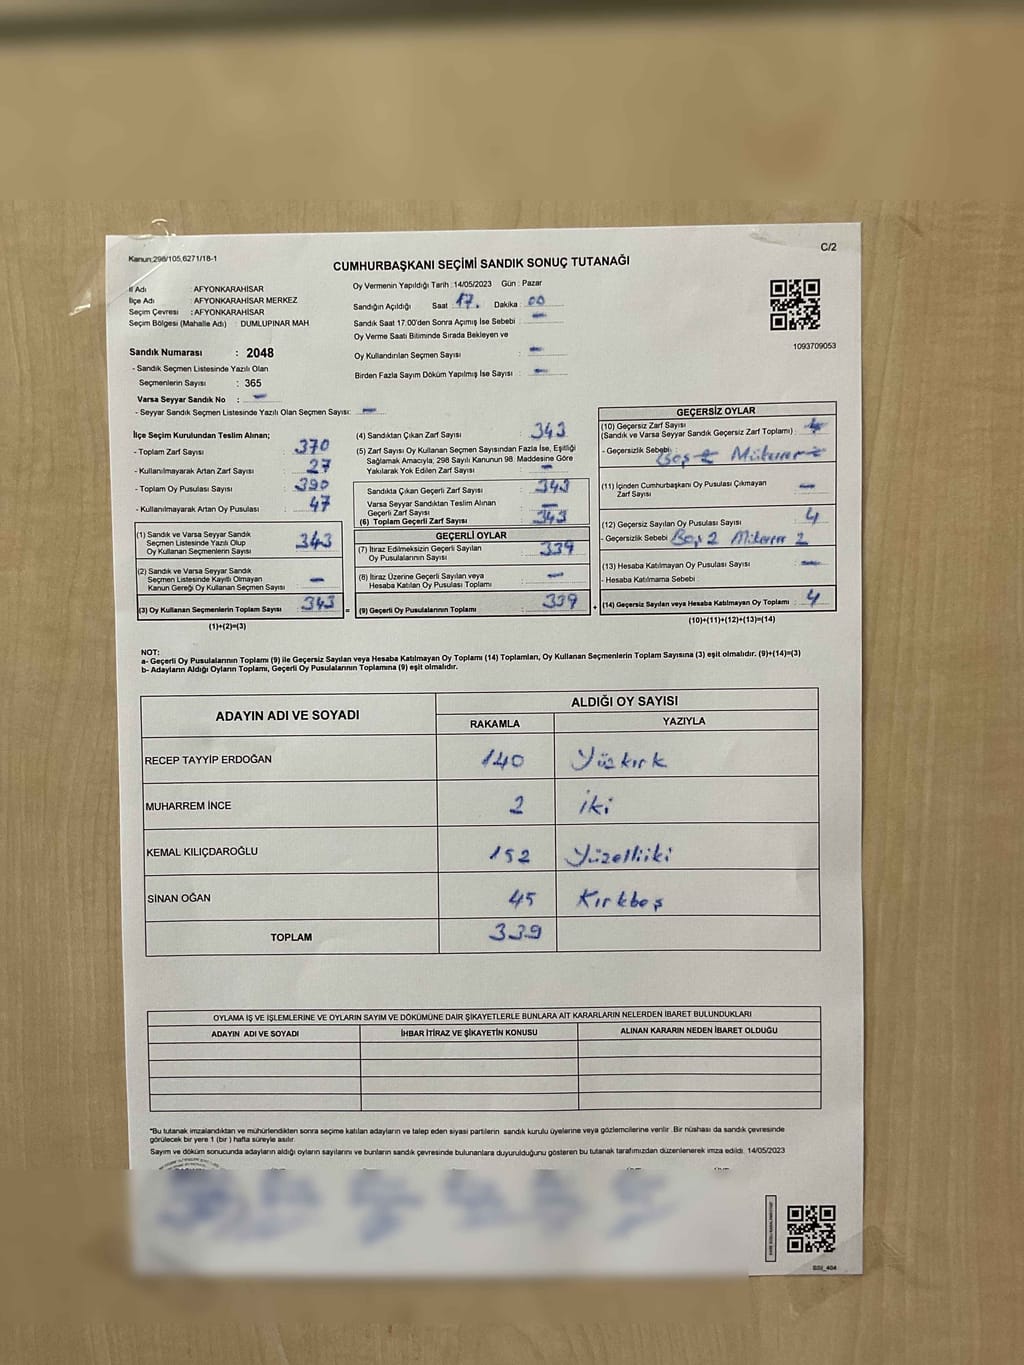 Kanun;298/105,6271/18-1
C/2
CUMHURBAŞKANI SEÇİMİ SANDIK SONUÇ TUTANAĞI
İl Adı : AFYONKARAHİSAR
İlçe Adı : AFYONKARAHİSAR MERKEZ
Seçim Çevresi : AFYONKARAHİSAR
Seçim Bölgesi (Mahalle Adı) : DUMLUPINAR MAH
Sandık Numarası : 2048
- Sandık Seçmen Listesinde Yazılı Olan
Seçmenlerin Sayısı : 365
Varsa Seyyar Sandık No : -
- Seyyar Sandık Seçmen Listesinde Yazılı Olan Seçmen Sayısı: -
Oy Vermenin Yapıldığı Tarih :14/05/2023 Gün : Pazar
Sandığın Açıldığı Saat 17. Dakika 00
Sandık Saat 17.00'den Sonra Açımış İse Sebebi : -
Oy Verme Saati Bitiminde Sırada Bekleyen ve
Oy Kullandırılan Seçmen Sayısı : -
Birden Fazla Sayım Döküm Yapılmış İse Sayısı : -
1093709053
İlçe Seçim Kurulundan Teslim Alınan;
- Toplam Zarf Sayısı : 370
- Kullanılmayarak Artan Zarf Sayısı : 27
- Toplam Oy Pusulası Sayısı : 390
- Kullanılmayarak Artan Oy Pusulası : 47
(1) Sandık ve Varsa Seyyar Sandık
Seçmen Listesinde Yazılı Olup
Oy Kullanan Seçmenlerin Sayısı : 343
(2) Sandık ve Varsa Seyyar Sandık
Seçmen Listesinde Kayıtlı Olmayan
Kanun Gereği Oy Kullanan Seçmen Sayısı : -
(3) Oy Kullanan Seçmenlerin Toplam Sayısı : 343 =
(1)+(2)=(3)
(4) Sandıktan Çıkan Zarf Sayısı : 343
(5) Zarf Sayısı Oy Kullanan Seçmen Sayısından Fazla İse, Eşitliği
Sağlamak Amacıyla, 298 Sayılı Kanunun 98. Maddesine Göre
Yakılarak Yok Edilen Zarf Sayısı : -
Sandıkta Çıkan Geçerli Zarf Sayısı : 343
Varsa Seyyar Sandıktan Teslim Alınan
Geçerli Zarf Sayısı : -
(6) Toplam Geçerli Zarf Sayısı : 343
GEÇERLİ OYLAR
(7) İtiraz Edilmeksizin Geçerli Sayılan
Oy Pusulalarının Sayısı : 339
(8) İtiraz Üzerine Geçerli Sayılan veya
Hesaba Katılan Oy Pusulası Toplamı : -
(9) Geçerli Oy Pusulalarının Toplamı : 339 +
GEÇERSİZ OYLAR
(10) Geçersiz Zarf Sayısı
(Sandık ve Varsa Seyyar Sandık Geçersiz Zarf Toplamı) :
- Geçersizlik Sebebi : Boş 2 Mükerrer 2
(11) İçinden Cumhurbaşkanı Oy Pusulası Çıkmayan
Zarf Sayısı : -
(12) Geçersiz Sayılan Oy Pusulası Sayısı : 4
- Geçersizlik Sebebi : Boş 2 Mükerrer 2
(13) Hesaba Katılmayan Oy Pusulası Sayısı : -
- Hesaba Katılmama Sebebi :
(14) Geçersiz Sayılan veya Hesaba Katılmayan Oy Toplamı : 4
(10)+(11)+(12)+(13)=(14)
NOT:
a- Geçerli Oy Pusulalarının Toplamı (9) ile Geçersiz Sayılan veya Hesaba Katılmayan Oy Toplamı (14) Toplamları, Oy Kullanan Seçmenlerin Toplam Sayısına (3) eşit olmalıdır. (9)+(14)=(3)
b- Adayların Aldığı Oyların Toplamı, Geçerli Oy Pusulalarının Toplamına (9) eşit olmalıdır.
ADAYIN ADI VE SOYADI
ALDIĞI OY SAYISI
RAKAMLA YAZIYLA
RECEP TAYYİP ERDOĞAN 140 Yüzkırk
MUHARREM İNCE 2 iki
KEMAL KILIÇDAROĞLU 152 Yüzelliiki
SİNAN OĞAN 45 Kırkbeş
TOPLAM 339
OYLAMA İŞ VE İŞLEMLERİNE VE OYLARIN SAYIM VE DÖKÜMÜNE DAİR ŞİKAYETLERLE BUNLARA AİT KARARLARIN NELERDEN İBARET BULUNDUKLARI
ADAYIN ADI VE SOYADI İHBAR İTİRAZ VE ŞİKAYETİN KONUSU ALINAN KARARIN NEDEN İBARET OLDUĞU
*Bu tutanak imzalandıktan ve mühürlendikten sonra seçime katılan adayların ve talep eden siyasi partilerin sandık kurulu üyelerine veya gözlemcilerine verilir. Bir nüshası da sandık çevresinde
görülecek bir yere 1 (bir ) hafta süreyle asılır.
Sayım ve döküm sonucunda adayların aldığı oyların sayılarını ve bunların sandık çevresinde bulunanlara duyurulduğunu gösteren bu tutanak tarafımızdan düzenlenerek imza edildi. 14/05/2023
SSI_404